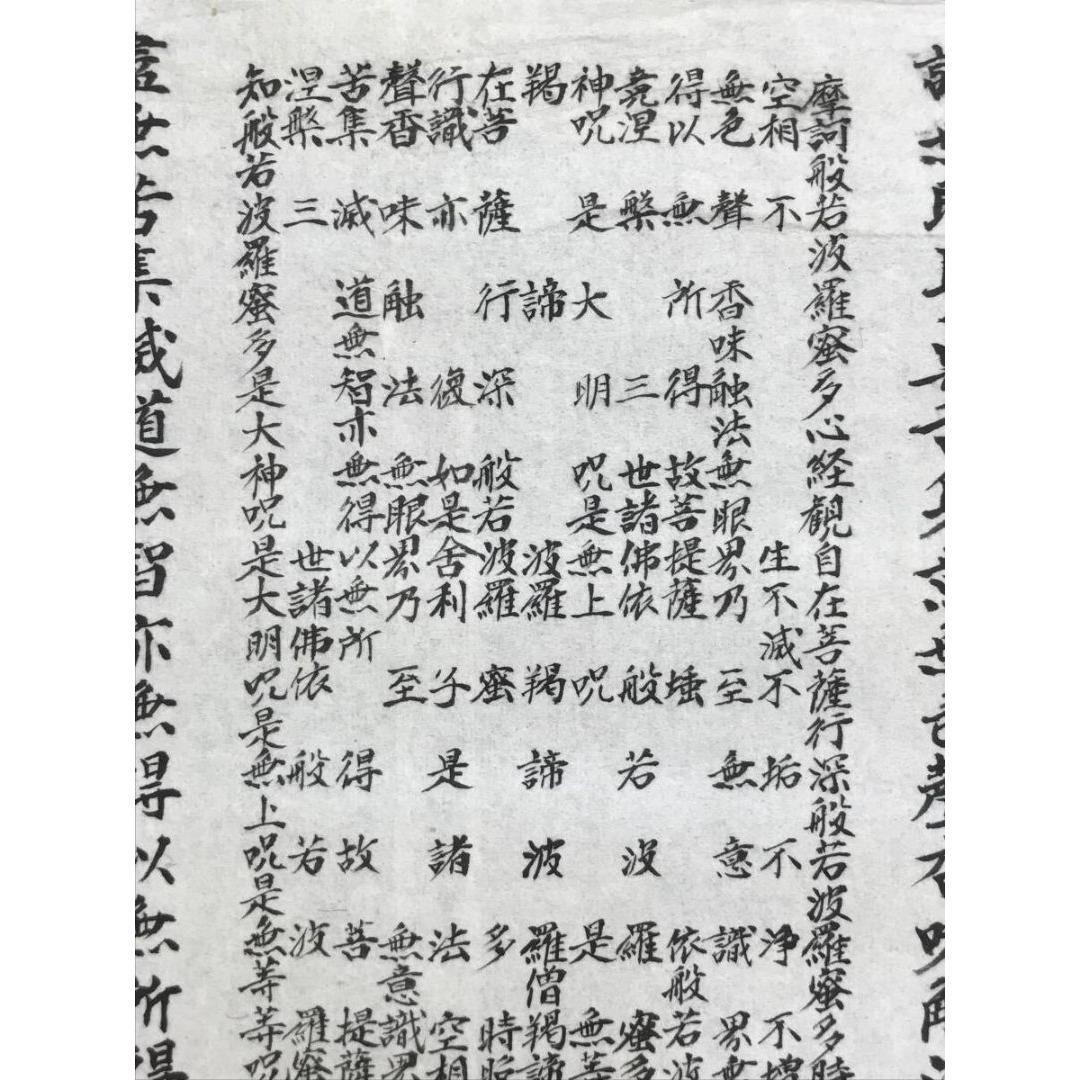 摩訶般若波羅蜜多心経観自在菩薩行深般若波羅蜜多時
空相不生不滅不垢不浄不増
無色聲香味触法無眼界乃至無意識界無
得以無所得故菩提薩埵依般若波
竟涅槃三世諸佛依般若波羅蜜多
神呪是大明呪是無上呪是無等
羯諦波羅羯諦波羅僧羯諦
在菩薩行深般若波羅蜜多時照
行識亦復如是舍利子是諸法空相
聲香味触法無眼界乃至無意識界
苦集滅道無智亦無得以無所得故菩提薩
涅槃三世諸佛依般若波羅蜜
知般若波羅蜜多是大神呪是大明呪是無上呪是無等等呪
無苦集滅道無智亦無得以無所得